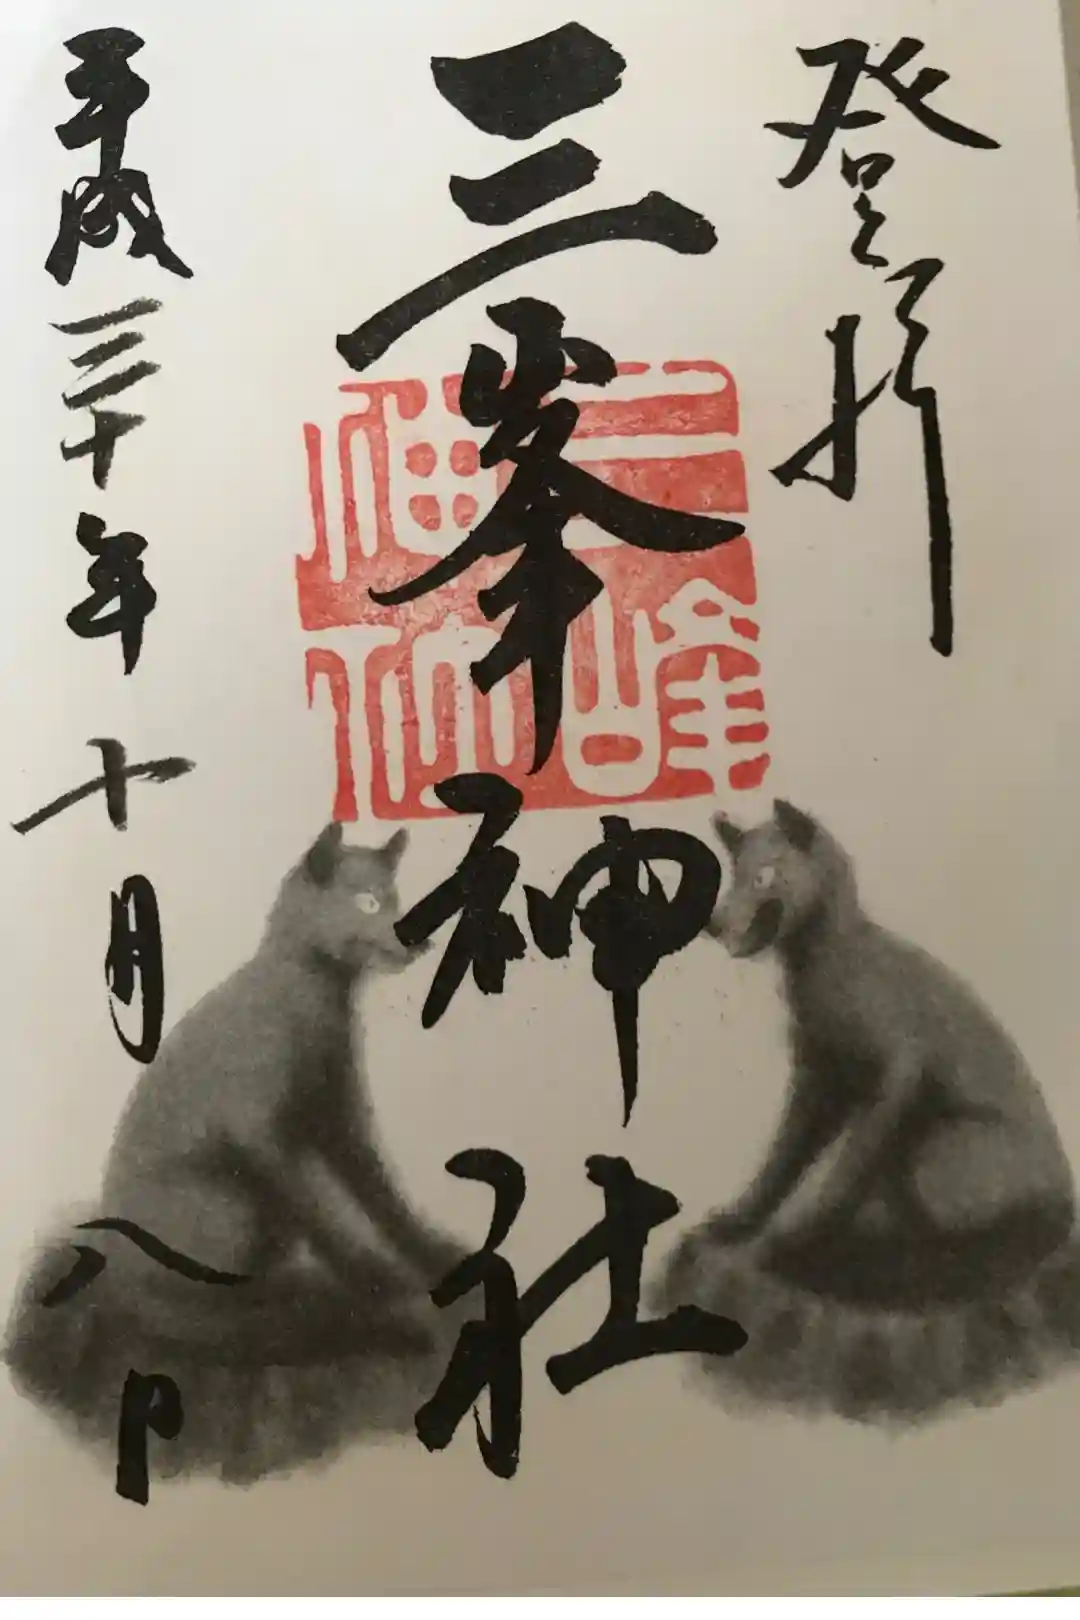 登拝
三峯神社
三峰神社
平成三十年十月八日